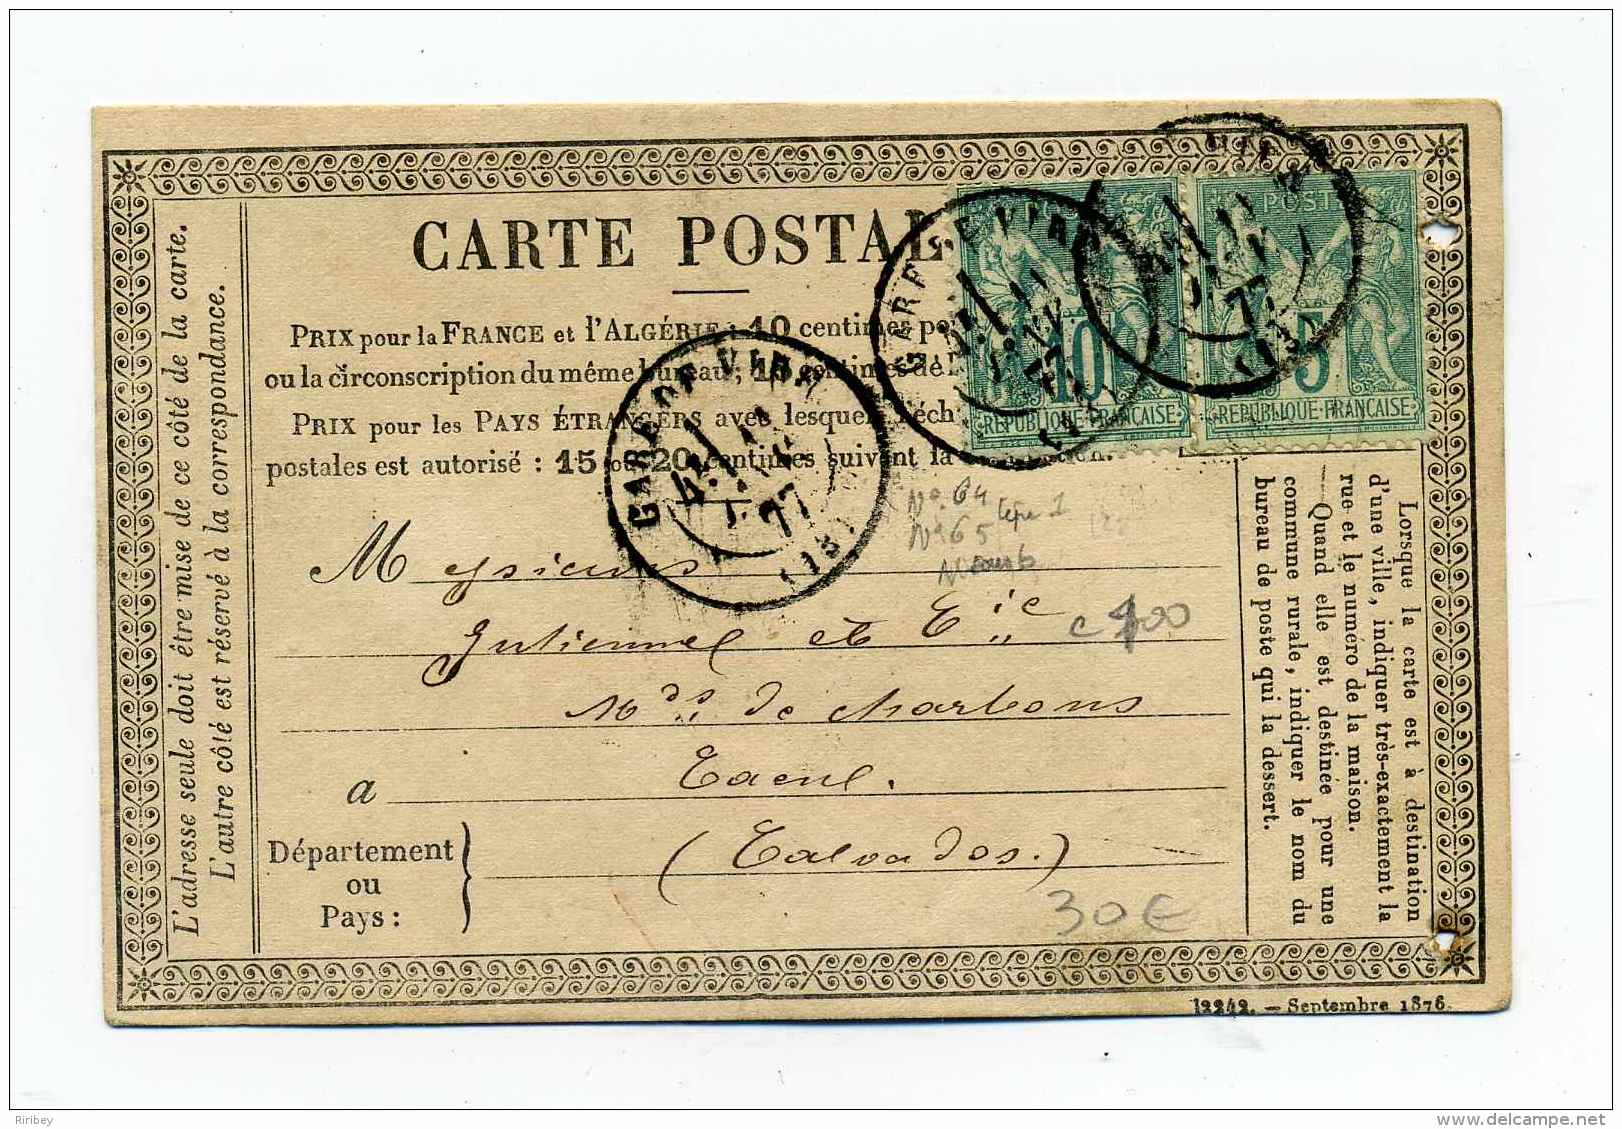 CARTE POSTAL
PRIX pour la FRANCE et l'ALGÉRIE : 10 centimes
ou la circonscription du même bureau; 15 centimes de
PRIX pour les PAYS ÉTRANGERS avec lesquels l'éch
postales est autorisé : 15 ou 20 centimes suivant la
L'adresse seule doit être mise de ce côté de la carte.
L'autre côté est réservé à la correspondance.
GARE DE VIRE
77
GARE DE VIRE
10
REPUBLIQUE FRANCAISE
POST
77
5
REPUBLIQUE FRANCAISE
No. 64
No 65
type 1
c 400
Messieurs
et Cie
Mds de charbons
à Caen.
Département
ou
Pays :
(Calvados.)
30€
Lorsque la carte est à destination
d'une ville, indiquer très-exactement la
rue et le numéro de la maison.
Quand elle est destinée pour une
commune rurale, indiquer le nom du
bureau de poste qui la dessert.
12242. — Septembre 1876.
Riribey
delcampe.net